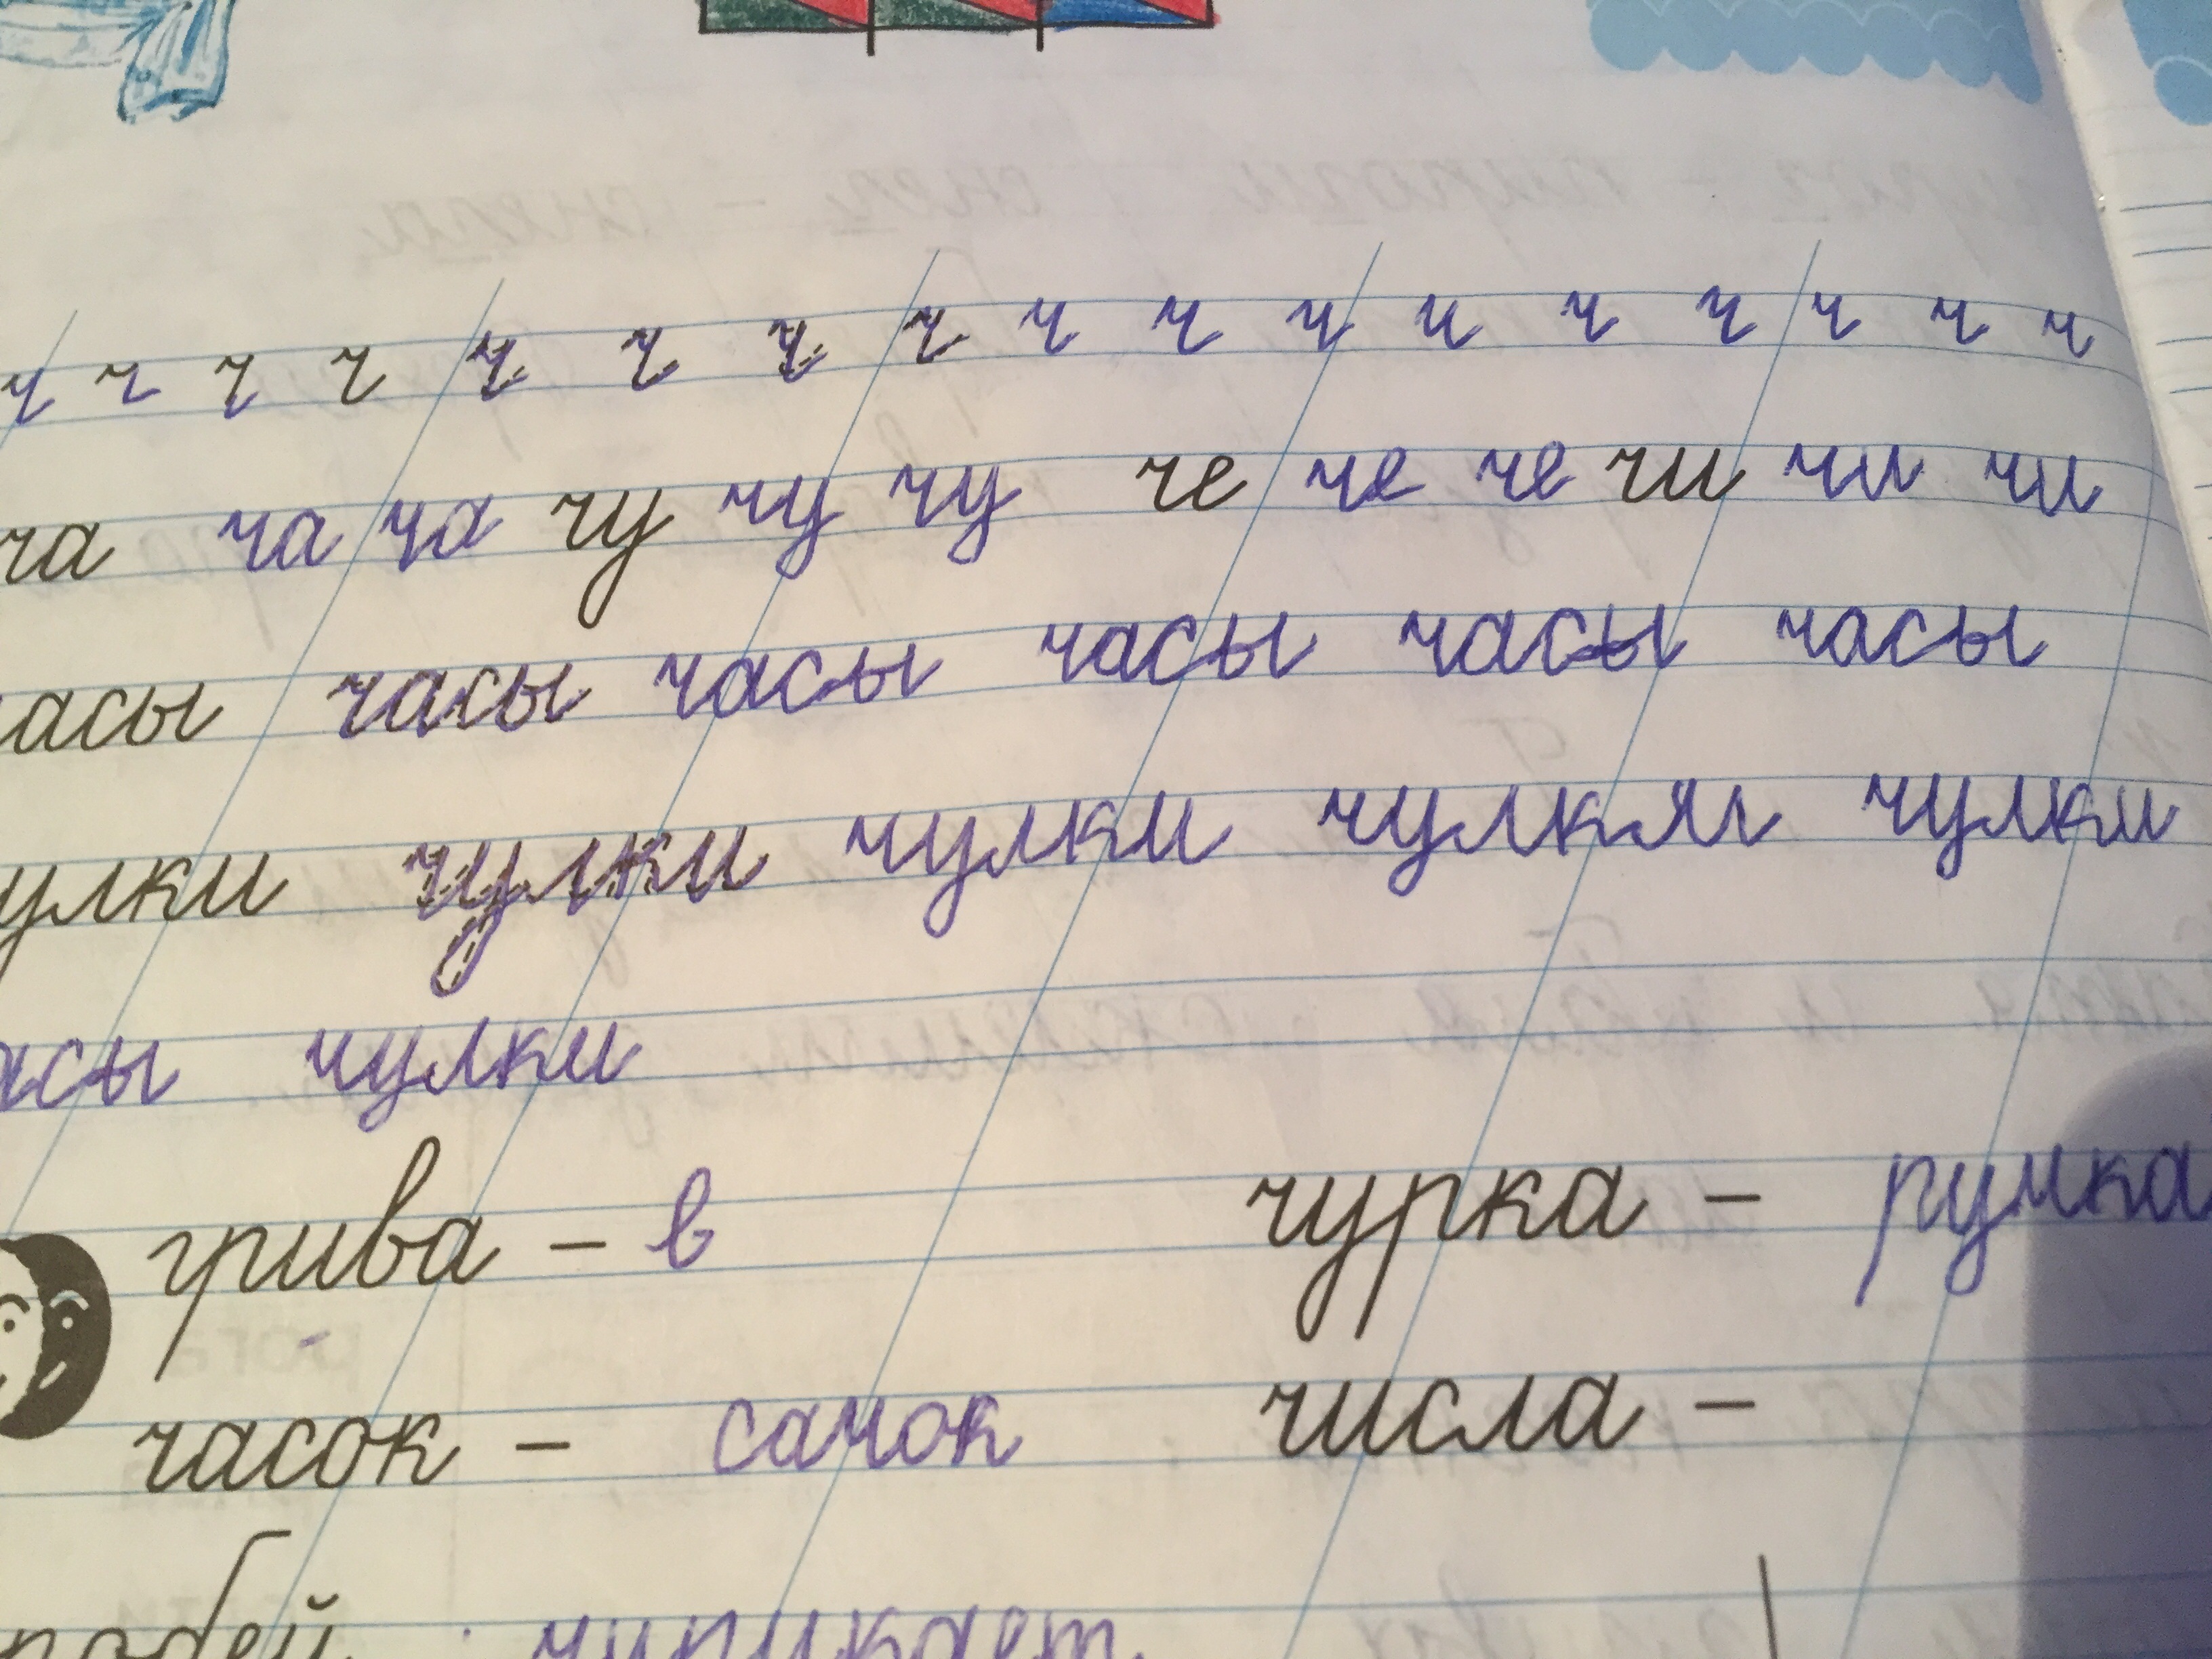 ч ч ч ч ч ч ч ч ч ч ч ч ч ч ч ч
ча ча ча чу чу чу че че че чи чи чи
часы часы часы часы часы часы
улки чулки чулки чулки чулки
асы чулки
грива – в чурка – румка
часок – сачок числа –
робей чирикает